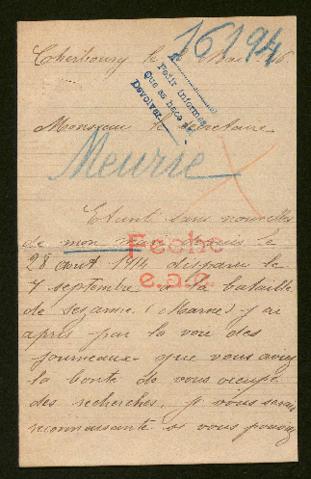 16194
Cherbourg le
Pedir informes
Que se haga
Devolver
Monsieur le secretaire
Meurie
Etant sans nouvelles
de mon mari depuis le
Fecha
28 août 1914 disparu le
e.a.c.
7 septembre a la bataille
de sezanne (Marne) j'ai
apris par la voie des
journeaux que vous aviez
la bonte de vous occupé
des recherches, je vous serais
reconnaissante si vous pouviez